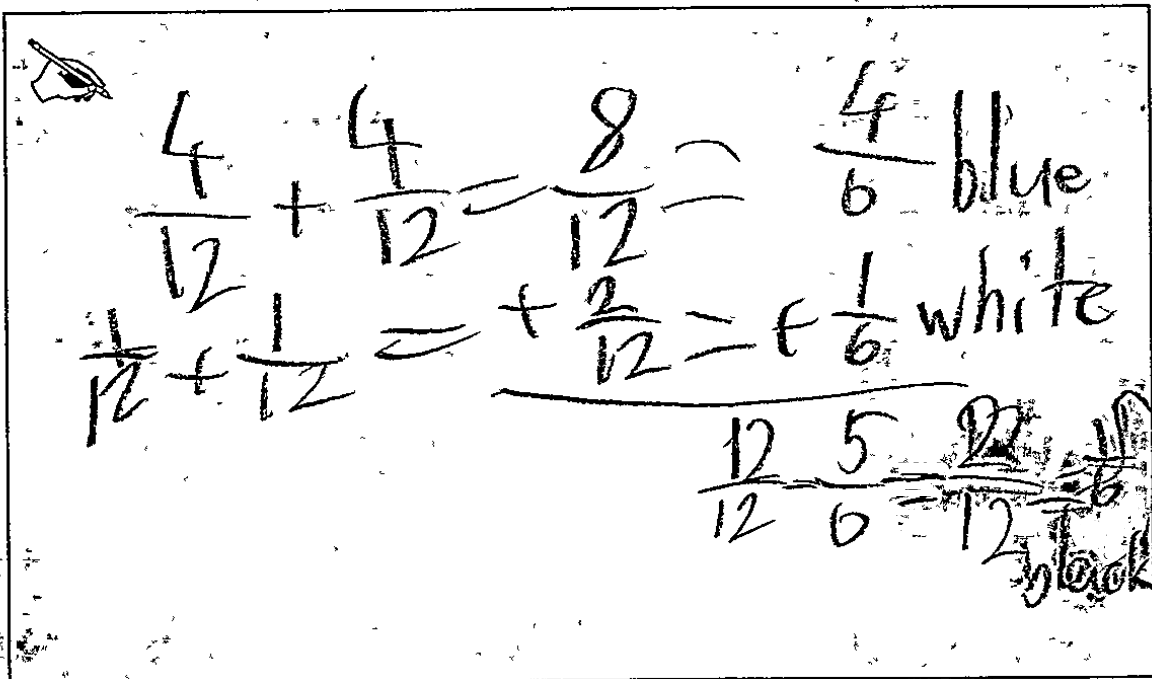 4/12 + 4/12 = 8/12 = 4/6 blue
1/12 + 1/12 = + 2/12 = + 1/6 white
12/12 - 5/6 = 2/12 = 1/6
black